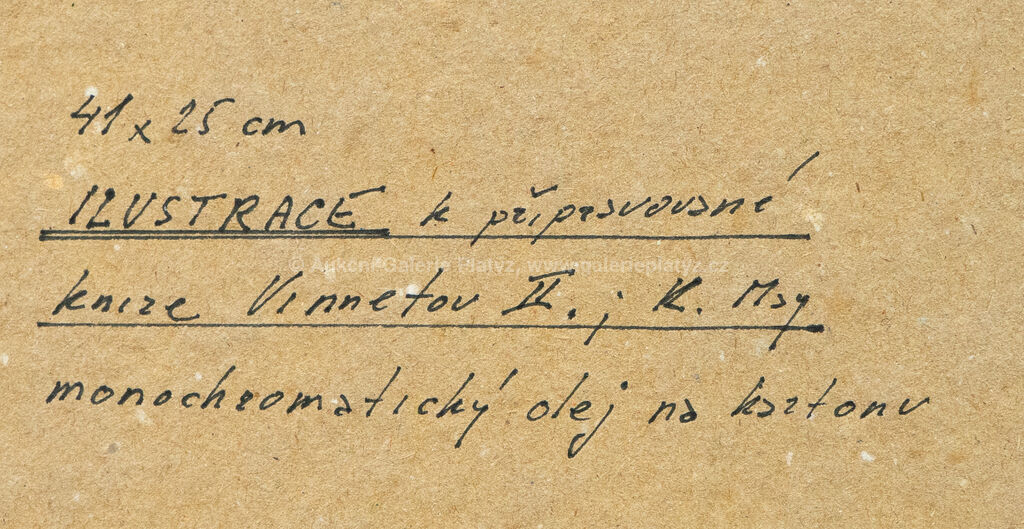 41 x 25 cm
ILUSTRACE k připravované
© Aukční Galerie Platýz, www.galerieplatyz.cz
knize Vinnetou II. ; K. May
monochromatický olej na kartonu